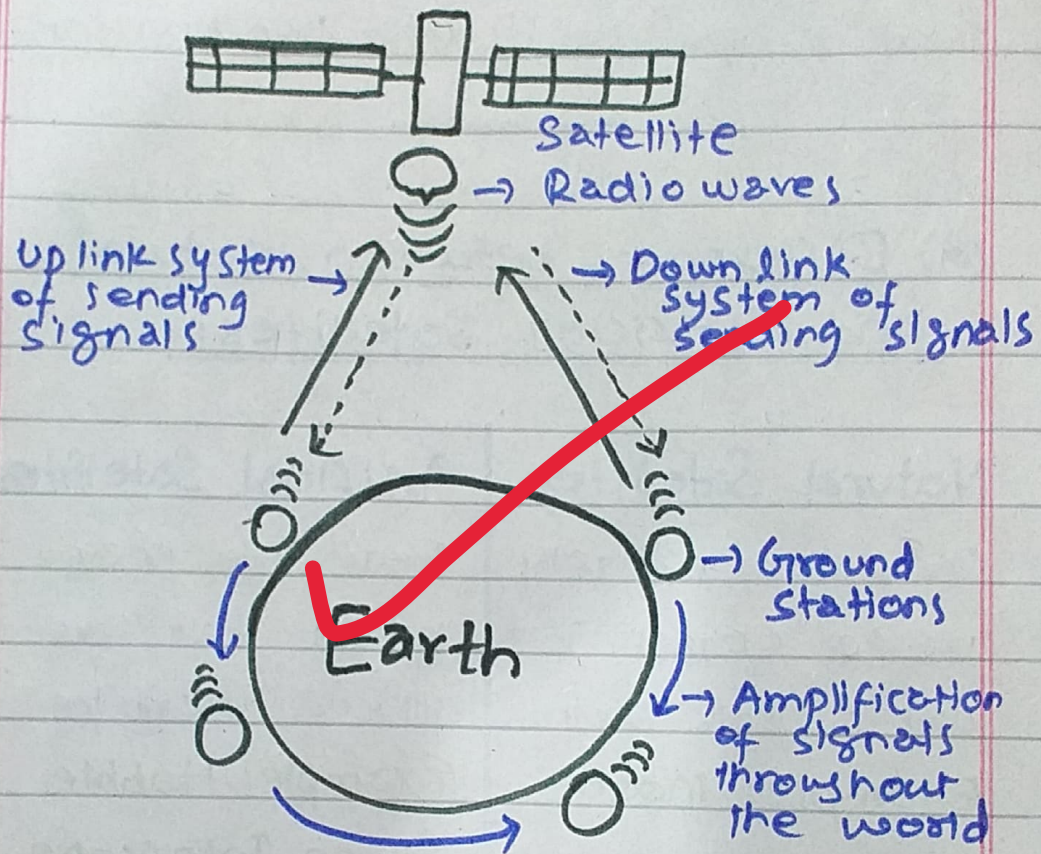 Satellite
→ Radio waves
Up link system
of sending
signals
→ Down link
system of
sending signals
→ Ground
stations
Earth
→ Amplification
of signals
throughout
the world